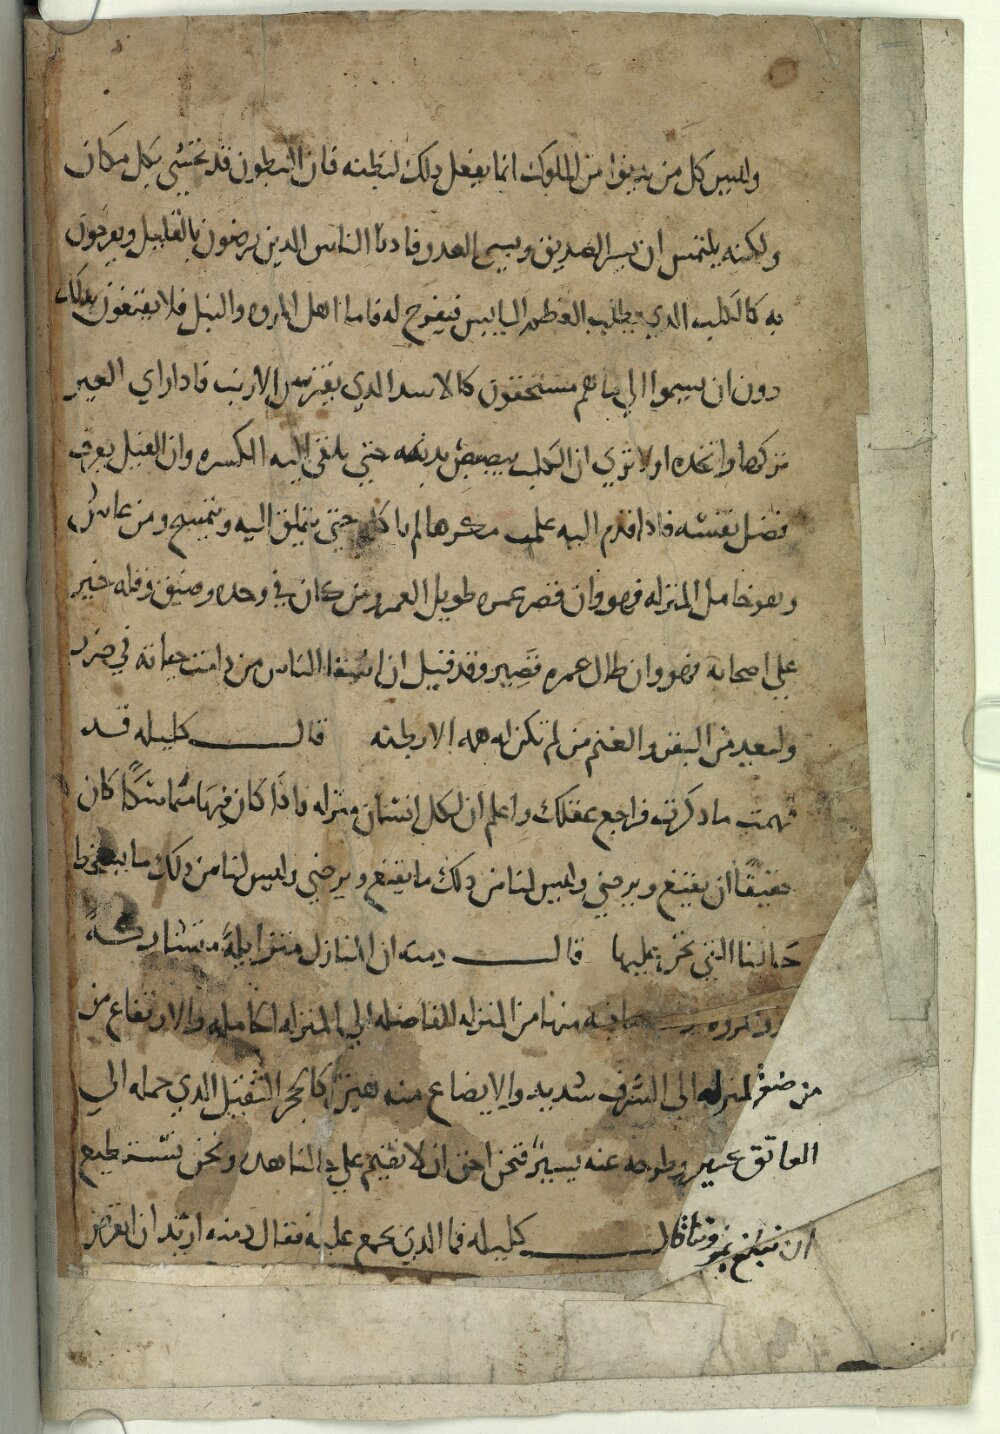 وليس كل من يدنوا من الملوك انما يفعل ذلك لبطنه فان البطون قد تحتشي بكل مكان
ولكنه يلتمس ان يسر الصديق ويسي العدو فادنا الناس الدين يرضون بالقليل ويفرحون
به كالكلب الدي يطلب العظم اليابس فيفرح له فاما اهل المروه والنبل فلا يقنعون بدلك
دون ان يسموا الي ما هم مستحقون كالاسد الدي يفترس الارنب فادا راي العير
تركها واتخده اولا تري ان الكلب يبصبص بدنبه حتي يلقي اليه الكسره وان الفيل يعرف
فضل نفسه فادا قدم اليه علف مكرها لم ياكله حتي يتملق اليه ويتمسح ومن عاش
وهو خامل المنزله فهو وان قصر عمره طويل العمر ومن كان في وحده وضيق وقله خير
علي اصحابه فهو وان طال عمره قصير وقد قيل ان اشقا الناس من دامت حياته في ضر
وليعد من البقر والغنم من لم تكن له همه الا بطنه قال كليله قد
فهمت ما دكرت فراجع عقلك واعلم ان لكل انسان منزله فاذا كان فيها متماسكًا كان
حقيقًا ان يقنع ويرضي وليس لنا من دلك ما يقنع ويرضي وليس لنا من دلك ما يسخط
حالنا التي نحن عليها قال دمنه ان المنازل متزايلةً متشاركةً
المنزله الفاضله الي المنزله الكامله والارتفاع من
من ضعة المنزله الي الشرف شديد والايضاع منه هين كالحجر الثقيل الدي حمله الي
العاتق عسير وطرحه عنه يسيرٌ فنحن احق ان لا نقيم علي حالنا هده ونحن نستطيع
ان قال كليله فما الدي تجمع عليه فقال دمنه اريد ان اتعرض